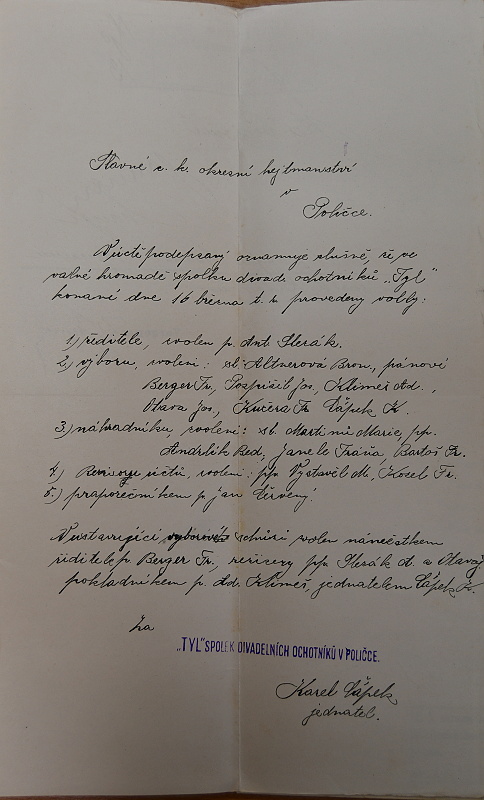 Slavné c. k. okresní hejtmanství
v
Poličce.
V úctě podepsaný oznamuje slušně, že ve
valné hromadě spolku divad. ochotníků „Tyl“
konané dne 16 března t. r. provedeny volby:
1) ředitele, zvolen p. Ant. Slesák.
2.) výboru, zvoleni: sl. Altnerová Bron., pánové
Berger Fr., Pospíšil Jos., Klimeš Ad.,
Otava Jos., Kučera Fr. Čápek K.
3.) náhradníku, zvoleni: sl. Martinů Marie, pp.
Andrlík Red, Janele Fráňa, Bartoš Fr.
4.) Revisory účtů, zvoleni: pp. Vystavěl M., Kozel Fr.
5.) praporečníkem p. Jan Červený.
V ustavující výborové schůzi zvolen náměstkem
ředitele p. Berger Fr., režisery pp. Slesák A. a Otava J.
pokladníkem p. Ad. Klimeš, jednatelem Čápek K.
Za
„TYL“ SPOLEK DIVADELNÍCH OCHOTNÍKŮ V POLIČCE.
Karel Čápek
jednatel.